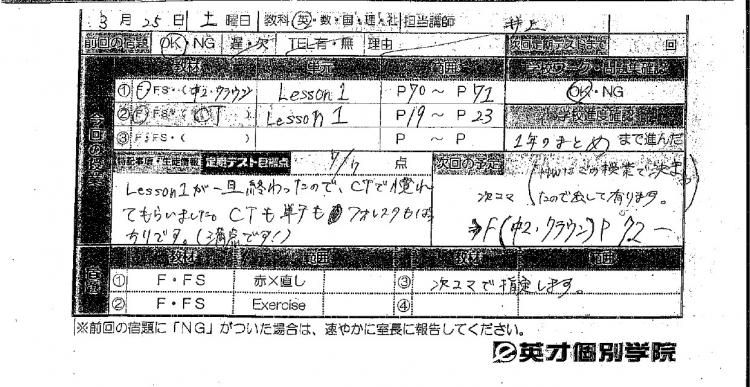 3月25日 土曜日 教科 英・数・国・理・社 担当講師 井上
前回の宿題 OK・NG 遅・欠 TEL有・無 理由 次回定期テストまで 回
教材 単元 範囲 学校ワーク・問題集確認
① F FS・(中2・クラウン) Lesson 1 P70 ～ P71 OK・NG
② F FS・( CT ) Lesson 1 P19 ～ P23 学校進度確認
③ F・FS・( ) P ～ P 1年のまとめ まで進んだ
今回の授業
特記事項・生徒情報 定期テスト目標点 点 次回の予定
Lesson1が一旦終わったので、CTで慣れ
てもらいました。CTも単テも フォレスタもば
っちりです。(満点です!)
次コマ
たので出して有ります。
F(中2・クラウン)P72ー
教材 範囲 教材 範囲
① F・FS 赤×直し ③ 次コマで指定します。
② F・FS Exercise ④
※前回の宿題に「NG」がついた場合は、速やかに室長に報告してください。
英才個別学院